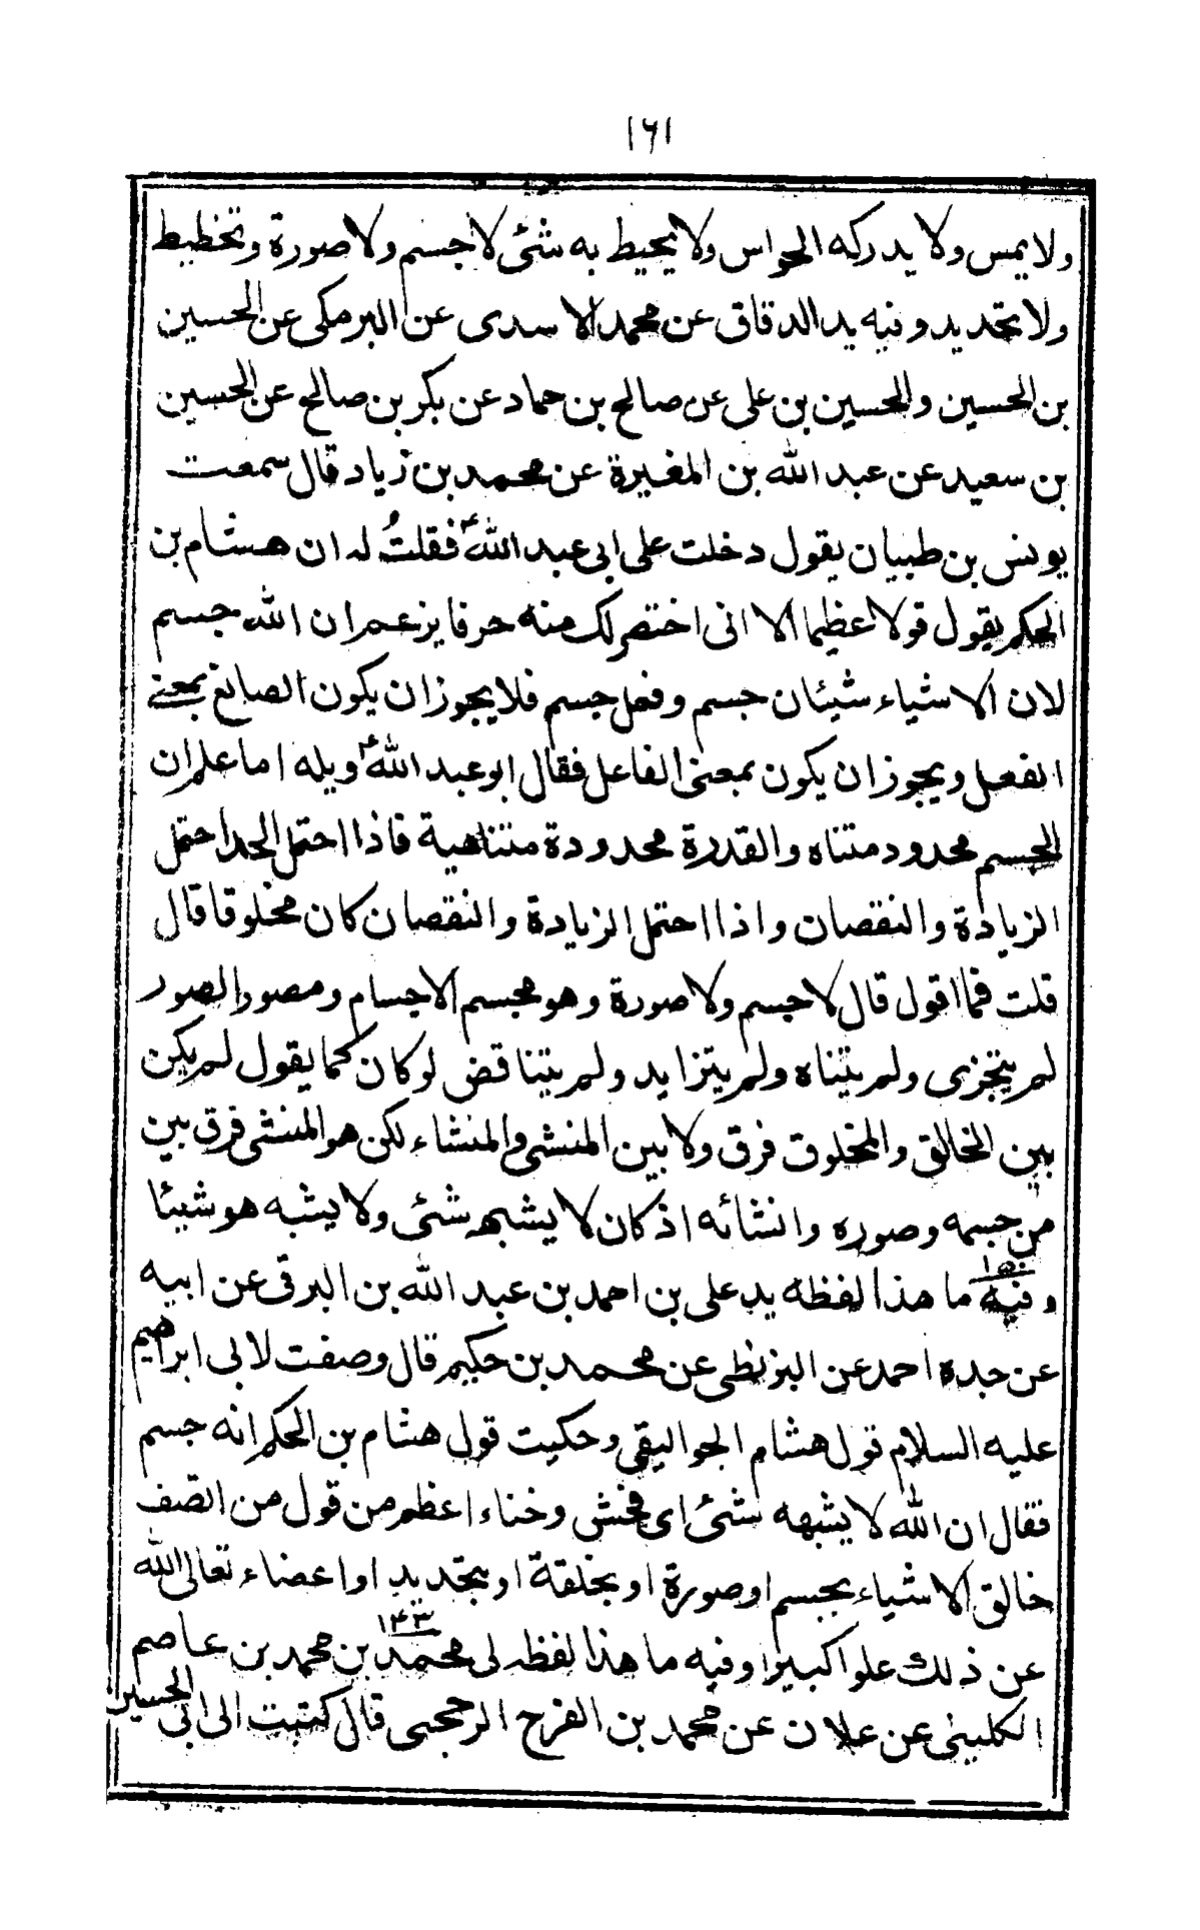 ١٦١
ولا يمس ولا يدركه الحواس ولا يحيط به شئ لا جسم ولا صورة وتخطيط
ولا تحديد وفيه يد الدقاق عن محمد الاسدى عن البرمكى عن الحسين
بن الحسين والحسين بن على عن صالح بن حماد عن بكر بن صالح عن الحسين
بن سعيد عن عبد الله بن المغيرة عن محمد بن زياد قال سمعت
يونس بن ظبيان يقول دخلت على ابى عبد الله ع فقلتُ له ان هشام بن
الحكم يقول قولا عظيما الا انى اختصر لك منه حرفا يزعم ان الله جسم
لان الاشياء شيئان جسم وفعل جسم فلا يجوز ان يكون الصانع بمعنى
الفعل ويجوز ان يكون بمعنى الفاعل فقال ابو عبد الله ع ويله اما علم ان
الجسم محدود متناه والقدرة محدودة متناهية فاذا احتمل الحد احتمل
الزيادة والنقصان واذا احتمل الزيادة والنقصان كان مخلوقا قال
قلت فما اقول قال لا جسم ولا صورة وهو مجسم الاجسام ومصور الصور
لم يتجزى ولم يتناه ولم يتزايد ولم يتناقض لو كان كما يقول لم يكن
بين الخالق والمخلوق فرق ولا بين المنشى والمنشاء لكن هو المنشى فرق بين
من جسمه وصوره وانشائه اذ كان لا يشبهه شئ ولا يشبه هو شيئا
١٥٠
وفيه ما هذا لفظه يد على بن احمد بن عبد الله بن البرقى عن ابيه
عن جده احمد عن البزنطى عن محمد بن حكيم قال وصفت لابى ابراهيم
عليه السلام قول هشام الجواليقى وحكيت قول هشام بن الحكم انه جسم
فقال ان الله لا يشبهه شئ اى فحش وخناء اعظم من قول من اتصف
خالق الاشياء بجسم او صورة او بخلقة او بتحديد او اعضاء تعالى الله
١٤٣
عن ذلك علوا كبيرا وفيه ما هذا لفظه لى محمد بن محمد بن عاصم
الكلينى عن علان عن محمد بن الفرج الرحجى قال كتبت الى ابى الحسين